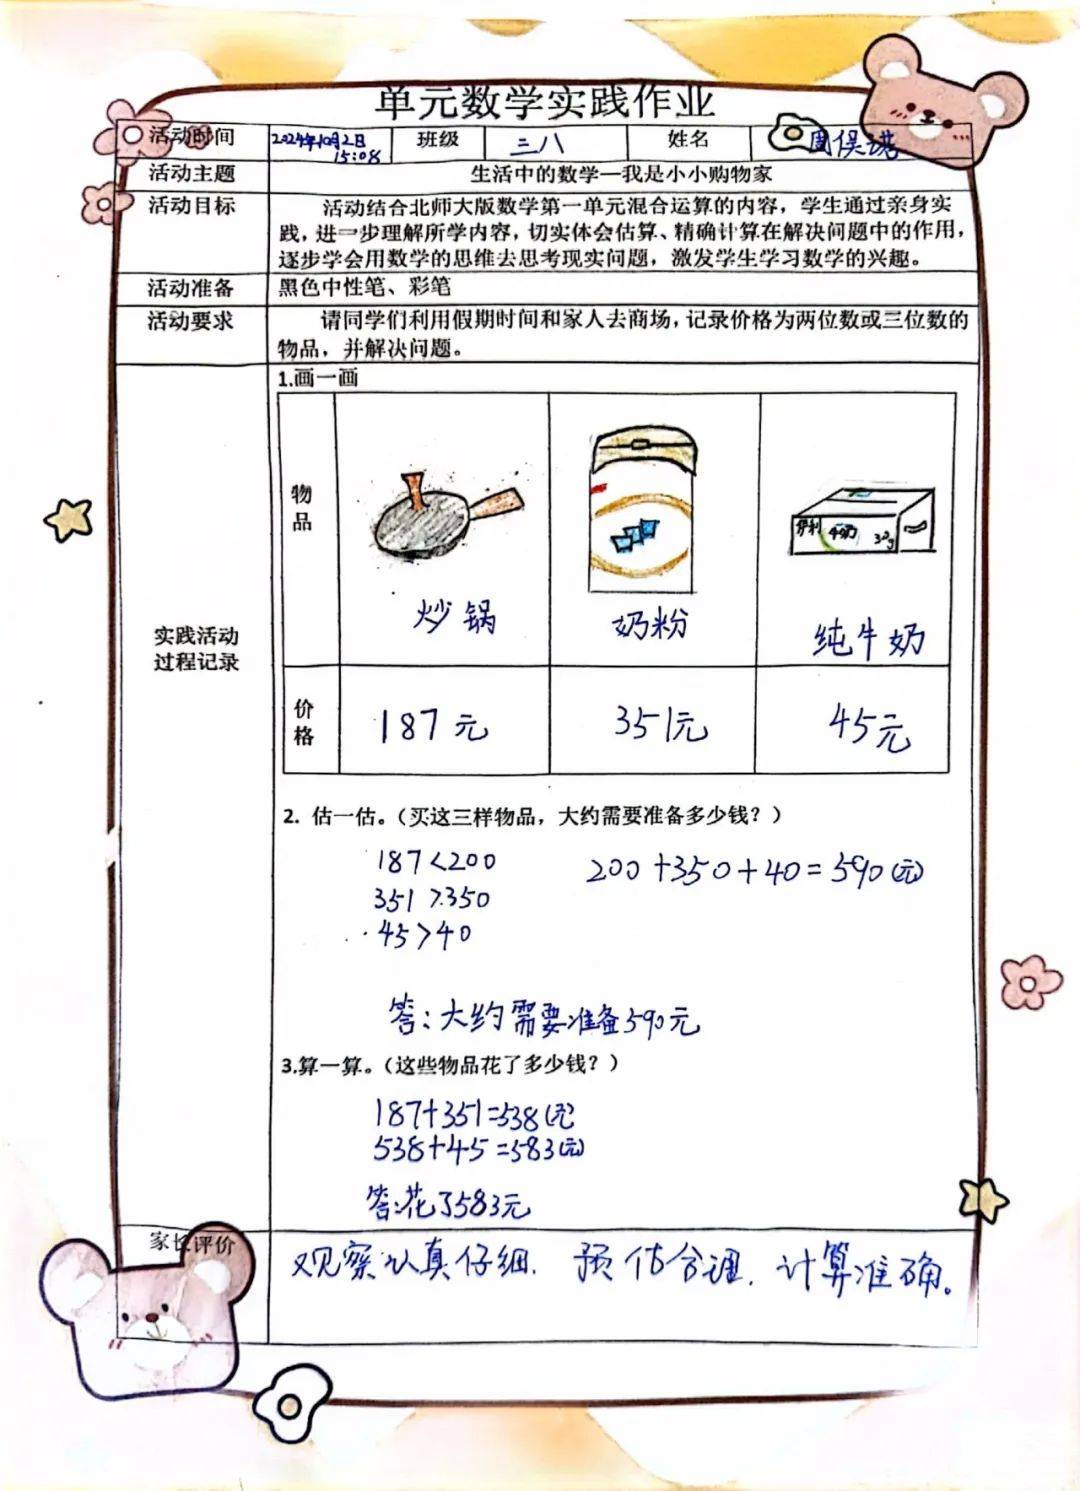 单元数学实践作业
活动时间 2024年10月2日 15:08 班级 三八 姓名 周俣诺
活动主题 生活中的数学—我是小小购物家
活动目标 活动结合北师大版数学第一单元混合运算的内容，学生通过亲身实
践，进一步理解所学内容，切实体会估算、精确计算在解决问题中的作用，
逐步学会用数学的思维去思考现实问题，激发学生学习数学的兴趣。
活动准备 黑色中性笔、彩笔
活动要求 请同学们利用假期时间和家人去商场，记录价格为两位数或三位数的
物品，并解决问题。
实践活动
过程记录
1.画一画
物品
伊利
炒锅 奶粉 纯牛奶
价格 187元 351元 45元
2. 估一估。（买这三样物品，大约需要准备多少钱？）
187<200 200+350+40=590(元)
351>350
45>40
答：大约需要准备590元
3.算一算。（这些物品花了多少钱？）
187+351=538(元)
538+45=583(元)
答：花了583元
家长评价 观察认真仔细. 预估合理. 计算准确。